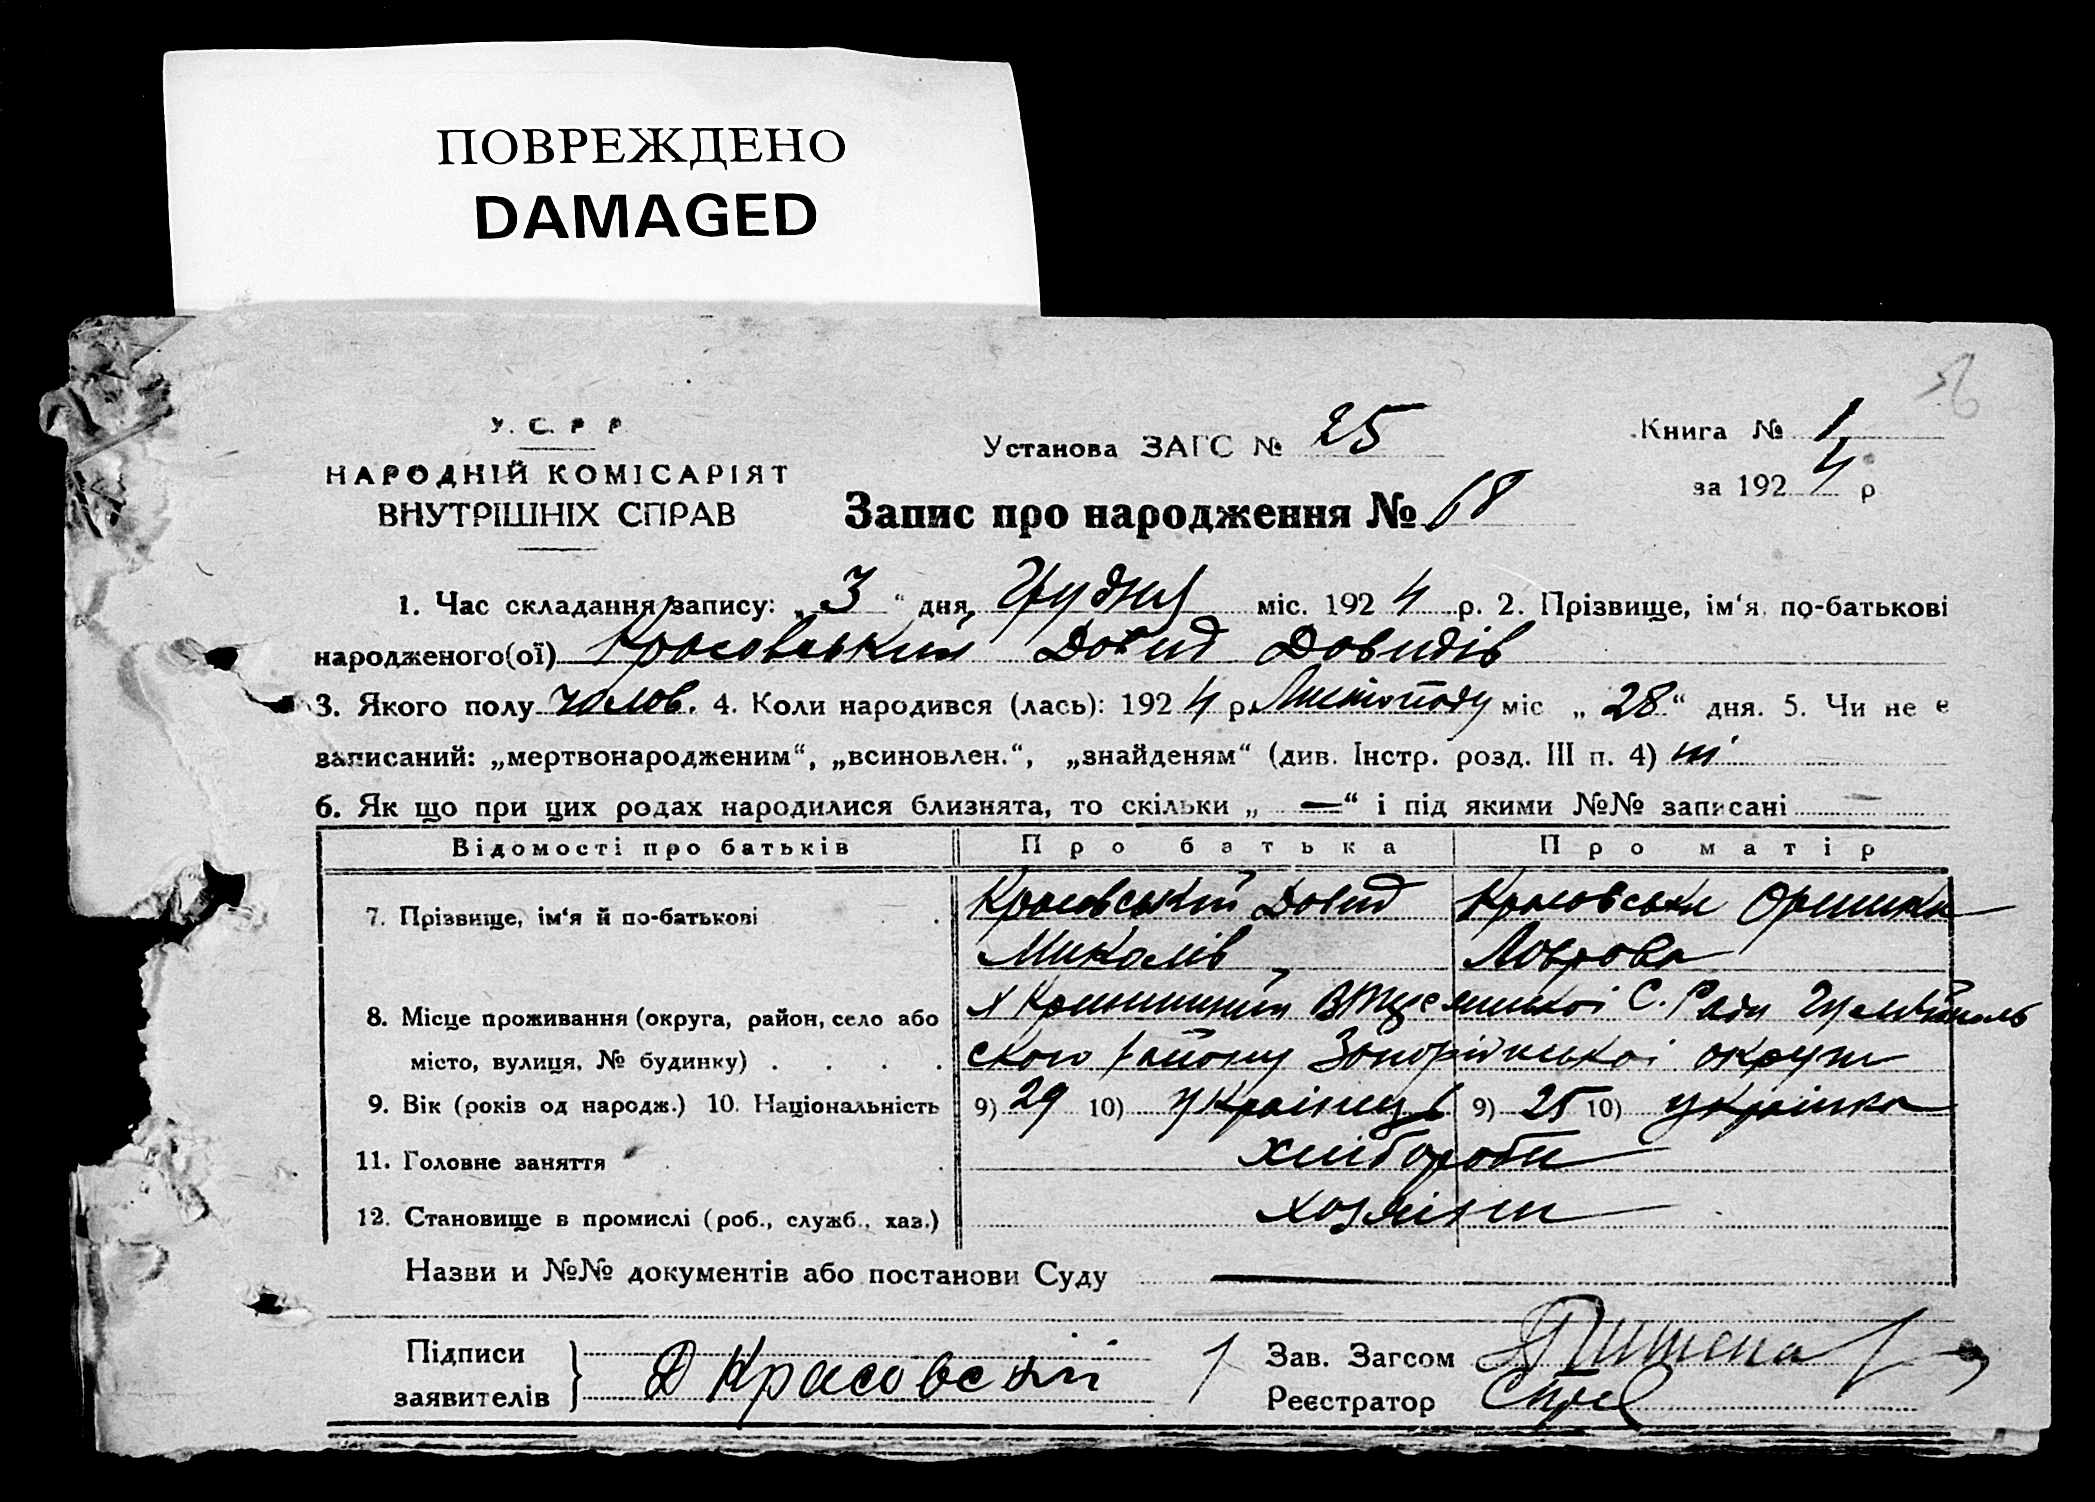 ПОВРЕЖДЕНО
DAMAGED
У. С. Р Р
НАРОДНІЙ КОМІСАРІЯТ
ВНУТРІШНІХ СПРАВ
Установа ЗАГС № 25
Книга № 1
за 1924 р
Запис про народження № 68
1. Час складання запису: „3“ дня, Грудня міс. 1924 р. 2. Прізвище, ім‘я, по-батькові
народженого(ої) Красовський Довид Довидів
3. Якого полу чолов. 4. Коли народився (лась): 1924 р. Листопаду міс „28“ дня. 5. Чи не е
записаний: „мертвонародженим“, „всиновлен.“, „знайденям“ (див. Інстр. розд. III п. 4) ні
6. Як що при цих родах народилися близнята, то скільки „—“ і під якими №№ записані —
Відомості про батьків Про батька Про матір
7. Прізвище, ім‘я й по-батькові Красовський Довид Красовська Оришка
Миколів Лаврова
8. Місце проживання (округа, район, село або х С. Ради
місто, вулиця, № будинку) ского району Запорізької округи
9. Вік (років од народж.) 10. Національність 9) 29 10) Українець 9) 25 10) українка
11. Головне заняття хлібороби
12. Становище в промислі (роб., служб., хаз.) хозяїни
Назви и №№ документів або постанови Суду —
Підписи
заявителів } Д Красовский
Зав. Загсом
Реєстратор